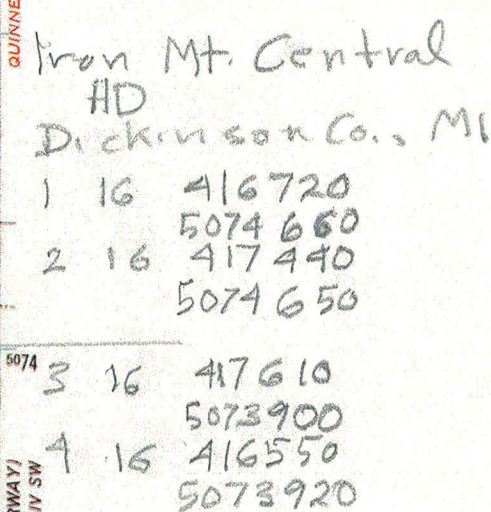 QUINNE
Iron Mt. Central
HD
Dickinson Co., MI
1 16 416720
5074660
2 16 417440
5074650
5074
3 16 417610
5073900
4 16 416550
5073920
RWAY)
IV SW